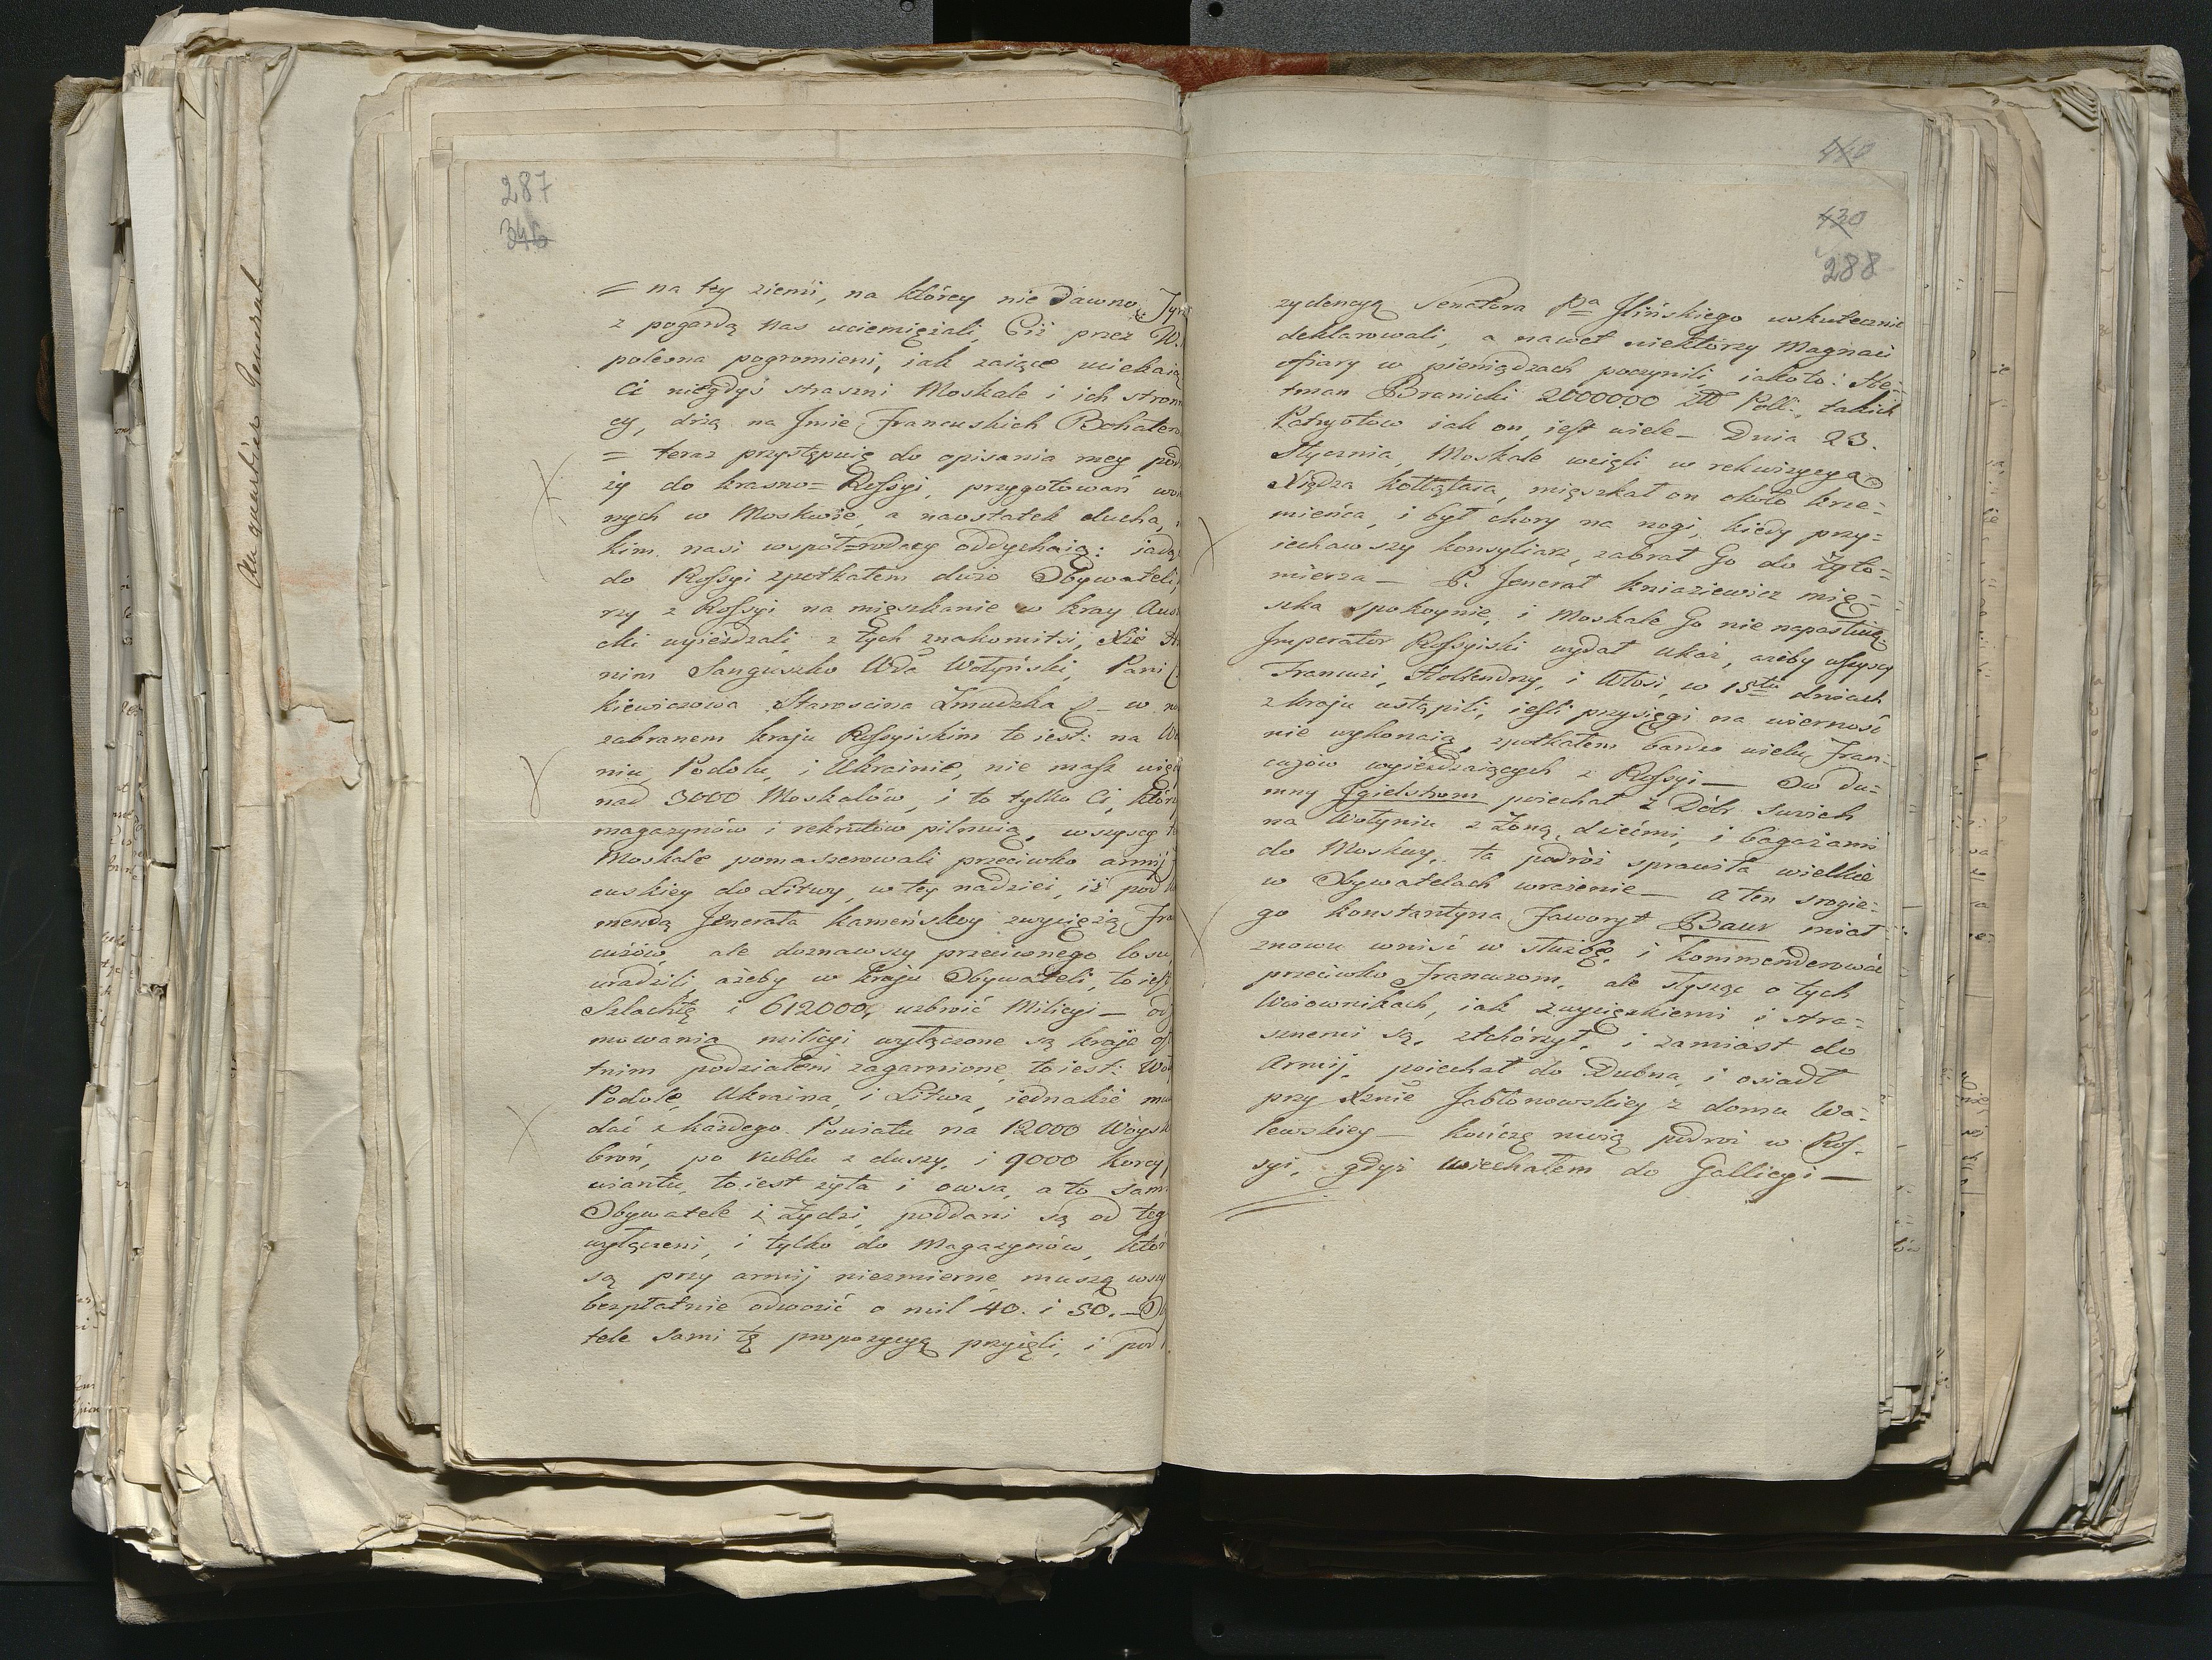 287
346
= na tey ziemi, na którey nie dawno, Tyr
z pogardą nas uciemiężali, Ciż przez W.
poleona pogromieni, iak zaiące uciekaią
Ci niegdyś straszni Moskale i ich stron
cy, drżą na Jmie Francuskich Bohater
= teraz przystępuię do opisania mey pod
ży do krasno= Rossyi, przygotowań wo
nych w Moskwie, a naostatek ducha,
kim nasi wspoł=rodacy oddychaią: iadąc
do Rossyi spotkałem dużo Obywateli,
rzy z Rossyi na mięszkanie w kray Aus
cki wyieżdzali, z tych znakomitsi, Xże
nim Sanguszko Wda Wołyński, Pani
kiewiczowa Starościna Żmudzka – w
zabranem kraju Rossyiskim to iest: na Wo
niu, Podolu, i Ukrainie, nie masz więc
nad 3000 Moskalów, i to tylko Ci, któr
magazynów i rekrutów pilnuią, wszyscy
Moskale pomaszerowali przeciwko armij
cuskiey do Litwy, w tey nadziei, iż pod
mendą Jenerała kameńskoy zwyciężą Fra
cuzów, ale doznawszy przeciwnego losu,
uradzili, ażeby w kraju Obywateli, to iest
Szlachtę i 612000, uzbroić Milicyi – od
mowania milicyi wyłączone są kraje os
tnim podziałem zagarnione, to iest: Woł
Podole, Ukraina, i Litwa, iednakże mu
dać z każdego Powiatu na 12000 Woysk
broń, po rublu z duszy, i 9000 korcy
wiantu, to iest żyta i owsa, a to sam
Obywatele i żydzi, poddani są od teg
wyłączeni, i tylko do Magazynów, któr
są przy armij niezmierne muszą wszy
bezpłatnie odwozić o mil 40. i 50. –
tele sami tę propozycyą przyięli, i pod
440
430
288
zydencyą Senatora Pa Jlińskiego uskutecznić
deklarowali, a nawet niektórzy Magnaci
ofiary w pieniądzach poczynili, iakoto: He=
tman Branicki 2000000 Poll:, takich
Patryotow iak on, iest wiele – Dnia 23.
Stycznia, Moskale wzięli w rekwizycyą
Xiędza kołłątaia, mięszkał on około krze=
mieńca, i był chory na nogi, kiedy przy=
iechawszy konsyliarz, zabrał Go do Żyto=
mierza – P. Jenerał kniaziewicz mię=
szka spokoynie, i Moskale Go nie napastuią.
Jmperator Rossyiski wydał ukaz, ażeby wszyscy
Francuzi, Hollendrzy, i Włosi, w 15tu dniach
z kraju ustąpili, iesli przysięgi na wierność
nie wykonaią, spotkałem bardzo wielu Fran=
cuzów wyieżdzaiących z Rossyi – Ow du=
mny Jgielstrom poiechał z Dóbr swoich
na Wołyniu z Żoną, dziećmi, i bagażami
do Moskwy, ta podróż sprawiła wielkie
w Obywatelach wrażenie – a ten srogie=
go konstantyna Faworyt Baur miał
znowu wniść w służbę, i kommenderować
przeciwko Francuzom, ale słysząc o tych
Woiownikach, iak zwycięzkiemi i stra=
sznemi są, stchórzył, i zamiast do
Armij, poiechał do Dubna, i osiadł
przy Xżnie Jabłonowskiey z domu Wo=
lewskiey – kończę moią podroż w Ros=
syi, gdyż wiechałem do Gallicyi –